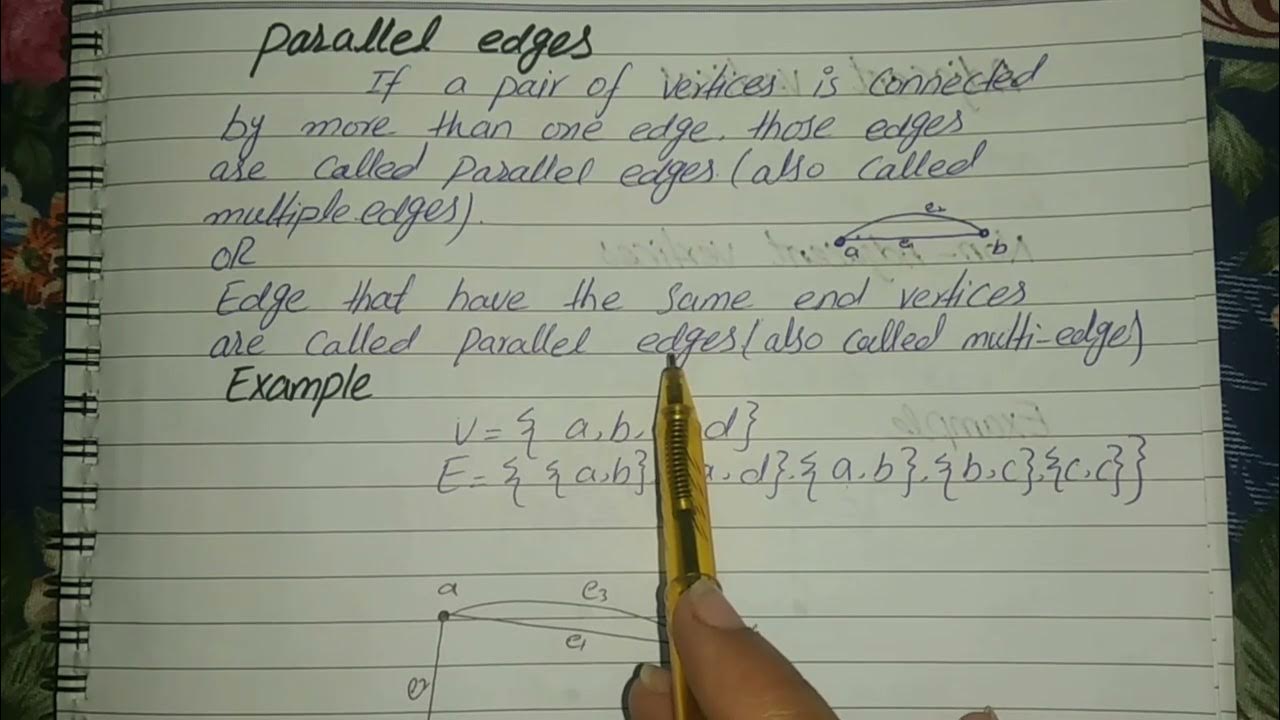 Parallel edges
If a pair of vertices is connected
by more than one edge. those edges
are called Parallel edges.(also called
multiple.edges).
e2
a e1 b
OR
Edge that have the same end vertices
are called Parallel edges(also called multi-edge)
Example
V={ a,b, d}
E={ {a,b} a,d}.{a,b}.{b,c},{c,c}}
a e3
e1
e2